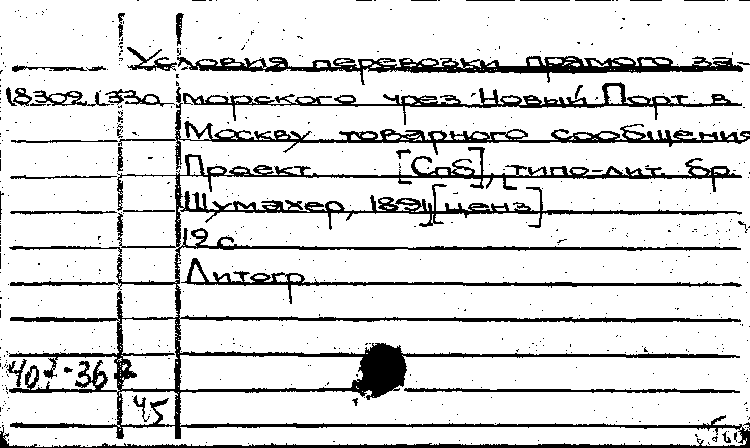 Условия перевозки прямого за-
18.309.1.330 морского чрез Новый Порт в
Москву товарного сообщения
Проект. [Спб], [типо-лит. бр.
Шумахер, 1891] [ценз.]
12 с.
Литогр.
407-36
45